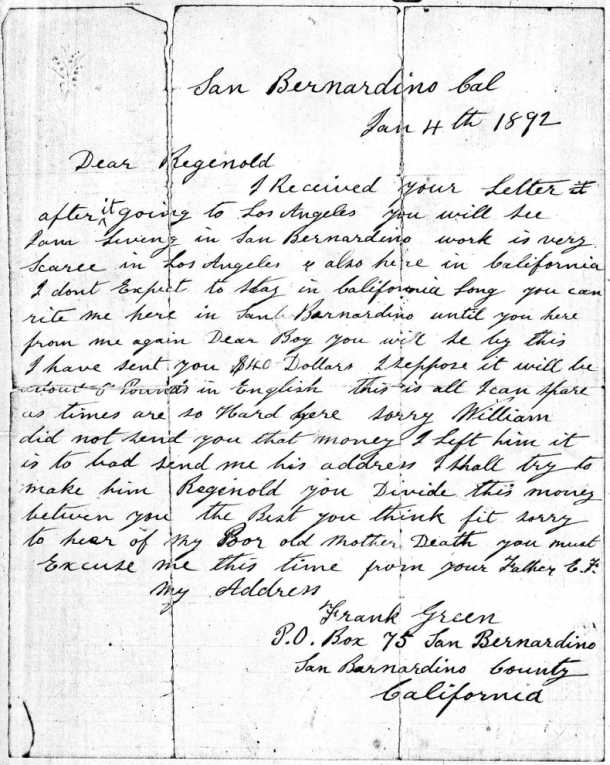 San Bernardino Cal
Jan 4th 1892
Dear Regenold
I Received your Letter it
after it going to Los Angeles you will see
I am Liveng in San Bernardeno work is very
Scarce in Los Angeles & also here in California
I dont Expect to stay in California Long you can
rite me here in San Bernardino until you here
from me again Dear Boy you will se by this
I have sent you $40 Dollars I seppose it will be
about Pounds in English this is all I can spare
as times are so Hard here sorry William
did not send you that money I Left him it
is to bad send me his address I shall try to
make him Regenold you Divide this money
betwen you the Best you think fit sorry
to hear of my Poor old mother Death you must
Excuse me this time from your Father E.F.
my Address
Frank Green
P.O. Box 75 San Bernardino
San Barnardino County
California